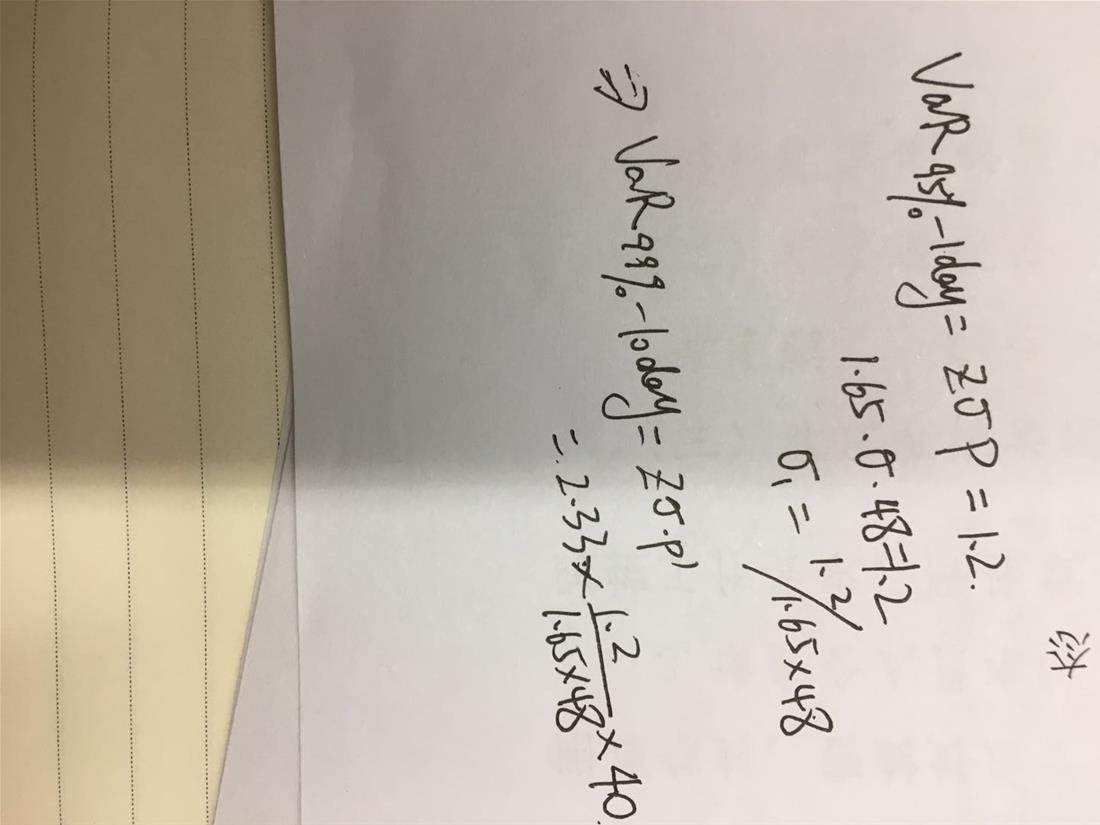 VaR 95%-1day = zσP = 1.2.
1.65·σ·48=1.2
σ₁ = 1.2/1.65×48
⇒ VaR 99%-10day = zσ·P'
= 2.33× 1.2/1.65×48 ×40.